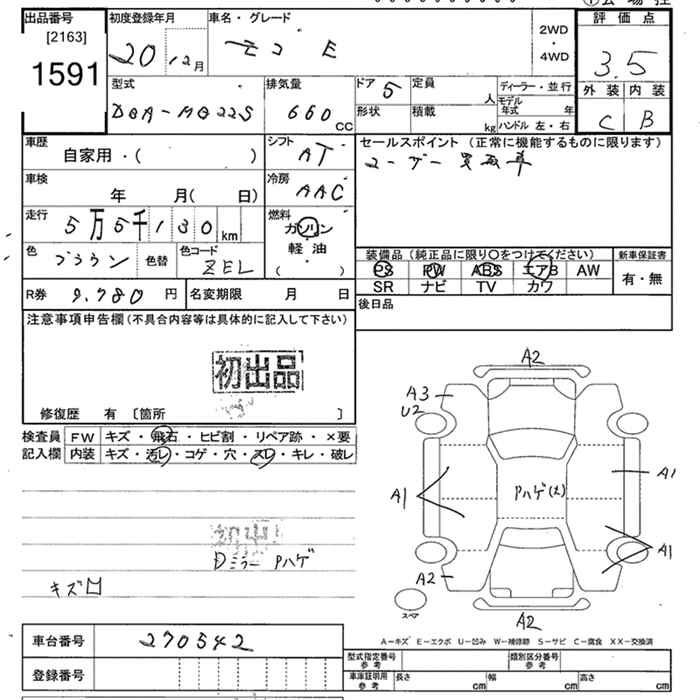 出品番号 初度登録年月 車名・グレード
[2163]
1591
20 12月 モコ E
2WD
・
4WD
評価点
3.5
外装 内装
C B
型式 排気量 ドア 5 定員 人 ディーラー・並行
DBA-MG22S 660 CC 形状 積載 kg モデル年式 年
ハンドル 左・右
車歴 シフト セールスポイント (正常に機能するものに限ります)
自家用・( ) AT ユーザー買取車
車検 冷房
年 月( 日) AAC
走行 5万5千130km 燃料
ガソリン
軽油
( ・ )
色 ブラウン 色替 色コード ZEL
装備品(純正品に限り○をつけてください) 新車保証書
PS PW ABS エアB AW 有・無
SR ナビ TV カワ
R券 9.780 円 名変期限 月 日 後日品
注意事項申告欄(不具合内容等は具体的に記入して下さい)
初出品
修復歴 有 〔箇所 〕
検査員 FW キズ・飛石・ヒビ割・リペア跡・×要
記入欄 内装 キズ・汚レ・コゲ・穴・スレ・キレ・破レ
A2
A3
U2
A1 Pハゲ(大) A1
A1
A2
スペア
A2
初出
Dミラー Pハゲ
キズ
車台番号 270542
登録番号
A-キズ E-エクボ U-凹み W-補修跡 S-サビ C-腐食 XX-交換済
型式指定番号 参考 類別区分番号 参考
車庫証明用 参考 長さ cm 幅 cm 高さ cm